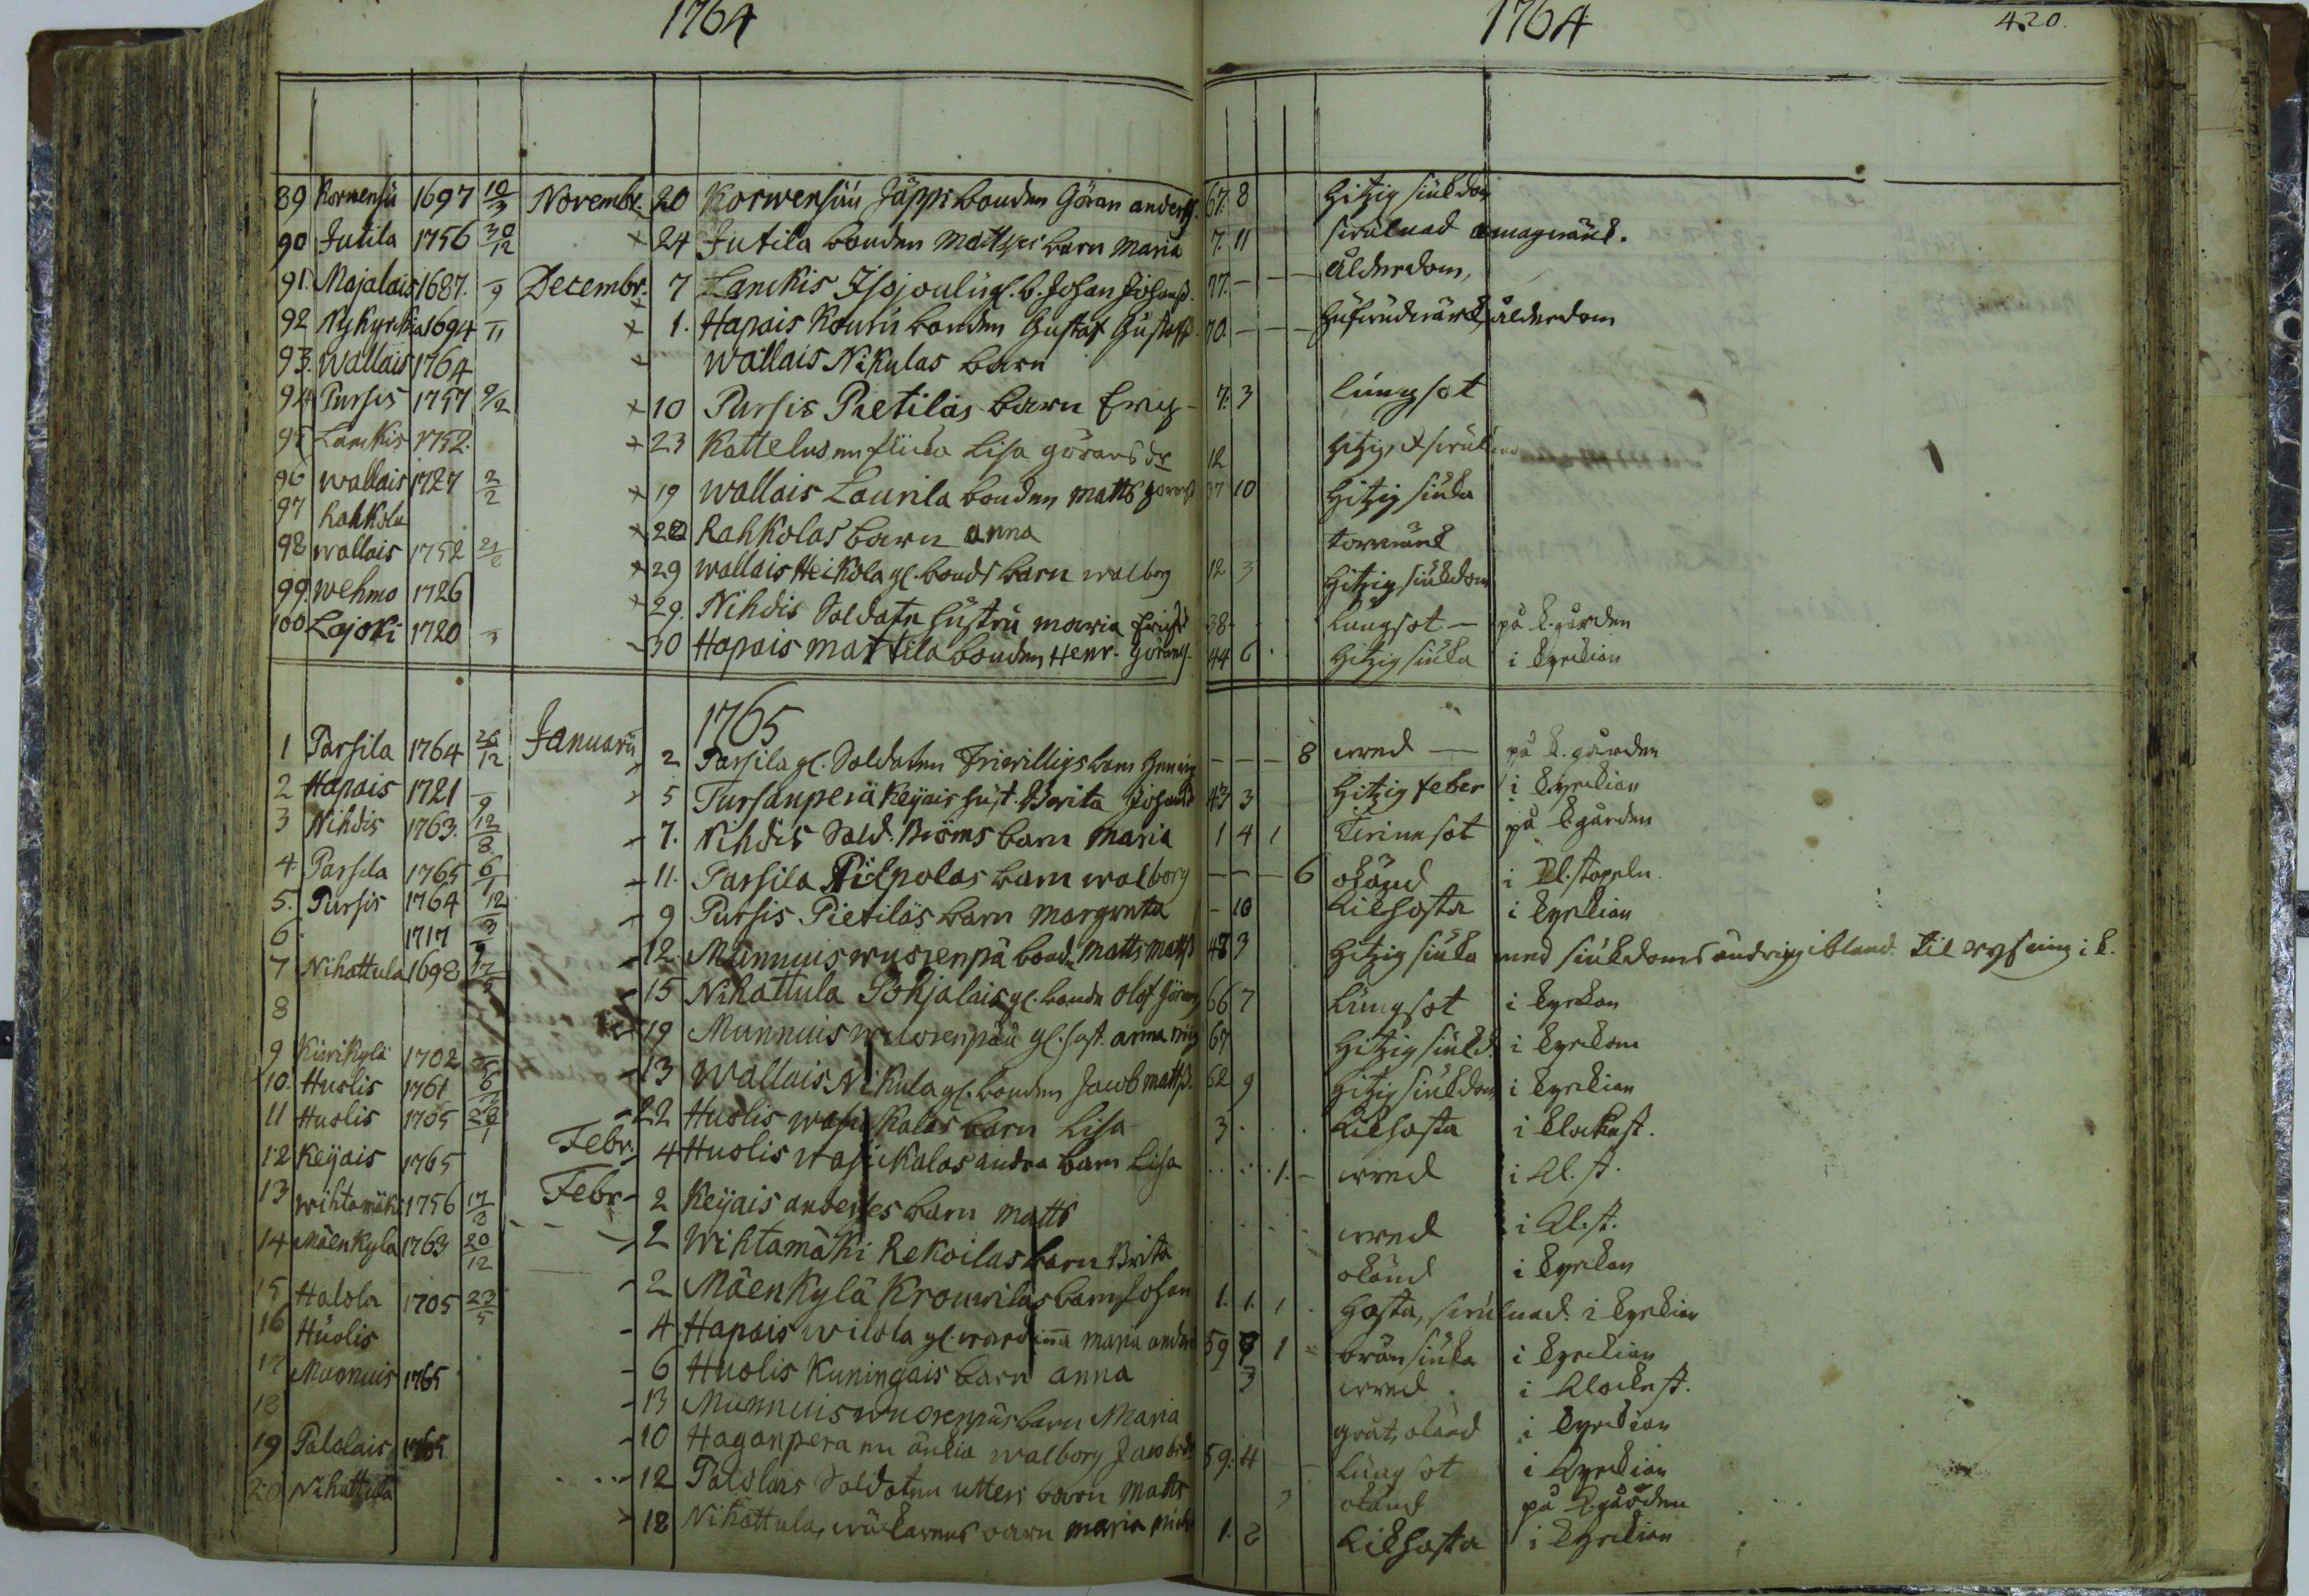 1764
1764
420.
89 Korwensu 1697 10/3 Novembr. 20 Korwensuu Jäppi bonden Göran anderss. 67. 8 hitzig siukdom
90 Jutila 1756 30/12 24 Jutila bonden Mattssi barn Maria 7. 11 swulnad
91. Majalais 1687. 9 Decembr. 7 Lanckis Isojouli gl. b. Johan Johanss. 77. ålderdom,
92 Nykyrkia 1694 11 1. Hapais Kouru bonden Gustaf Gustafss. 70. hufwudwärk, ålderdom
93. Wallais 1764 Wallais Nikulas barn
94 Pursis 1757 9/2 10 Pursis Pietilas barn Eric 7. 3 lungsot
95 Lanckis 1752. 23 Kattelus Lisa Görans dr 12 hitzig
96 Wallais 1727 2/2 19 Wallais Laurila bonden Matts 37 10 hitzig siuka
97 Rahkola 22 Rahkolas barn anna torrwärk
98 Wallais 1752 21/2 29 Wallais Heikola gl. bonds barn walborg 12 3 hitzig siukdom
99. Wehmo 1726 29. Nihdis Soldatn hustru maria 38 lungsot på k. gården
100 Lajoki 1720 3 30 Hapais Mattila bonden Henr. Görans 44 6 hitzig siuka i kyrckian
1765
1 Parsila 1764 26/12 Januarii 2 Parsila gl. Soldaten Friwilligs barn 8 wred på k. gården
2 Hapais 1721 9 5 Tursanperä Keijais hust. Brita Johansd 43 3 hitzig feber i kyrckian
3 Nihdis 1763. 12/8 7. Nihdis Sold. Broms barn Maria 1 4 1 på k. gården
4 Parsila 1765 6/1 11. Parsila Pilpolas barn walborg 6 okänd i kl. stapeln.
5. Pursis 1764 12/3 9 Pursis Pietiläs barn Margreta 10 kikhosta i kyrckian
6 1717 12. Munnuis wuorenpä bond. Matts Mattss 48 3 hitzig siuka med
7 Nihattula 1698 15 Nihattula Pohjalais gl. bonde Olof Görans 66 7 lungsot i kyrckan
8 19 Munnuis wuorenpää gl. hust. anna 67 hitzig siukd. i kyrckan
9 Kiwikylä 1702 13 Wallais Nikula gl. bonden Jacob Mattss. 62 9 hitzig siukdom i kyrckian
10. Huolis 1761 22 Huolis wasikalas barn Lisa 3 kikhosta i klockest.
11 Huolis 1765 28/1 Febr. 4 Huolis wasikalas andra barn Lisa 1. wred i kl. st.
12 Keijais 1765 Febr 2 Keijais andersses barn Matts wred i kl. st.
13 Wihtamäki 1756 17/8 2 Wihtamäki Rekoilas barn Brita okänd i kyrckan
14 Mäenkylä 1763 20/12 2 Mäenkylä Krouwilas barn Johan 1. 1. 1 hosta, swulnad. i kyrckian
15 Halola 1705 23/5 4 Hapais wilola gl. wärdinna maria 59 8 1 brännsiuka i kyrckian
16 Huolis 6 Huolis Kuningais barn anna 3 wred i klockest.
17 Munnuis 1765 13 Munnuis wuorenpäs barn Maria okänd i kyrckian
18 10 Haganpera walborg Jacobsdr 59. 4 lungsot i kyrckian
19 Palolais 1765 12 Palolais Soldaten utters barn Matts 3 okänd på k. gården
20 Nihattula 18 Nihattula, barn maria 1. 2 kikhosta i kyrckian